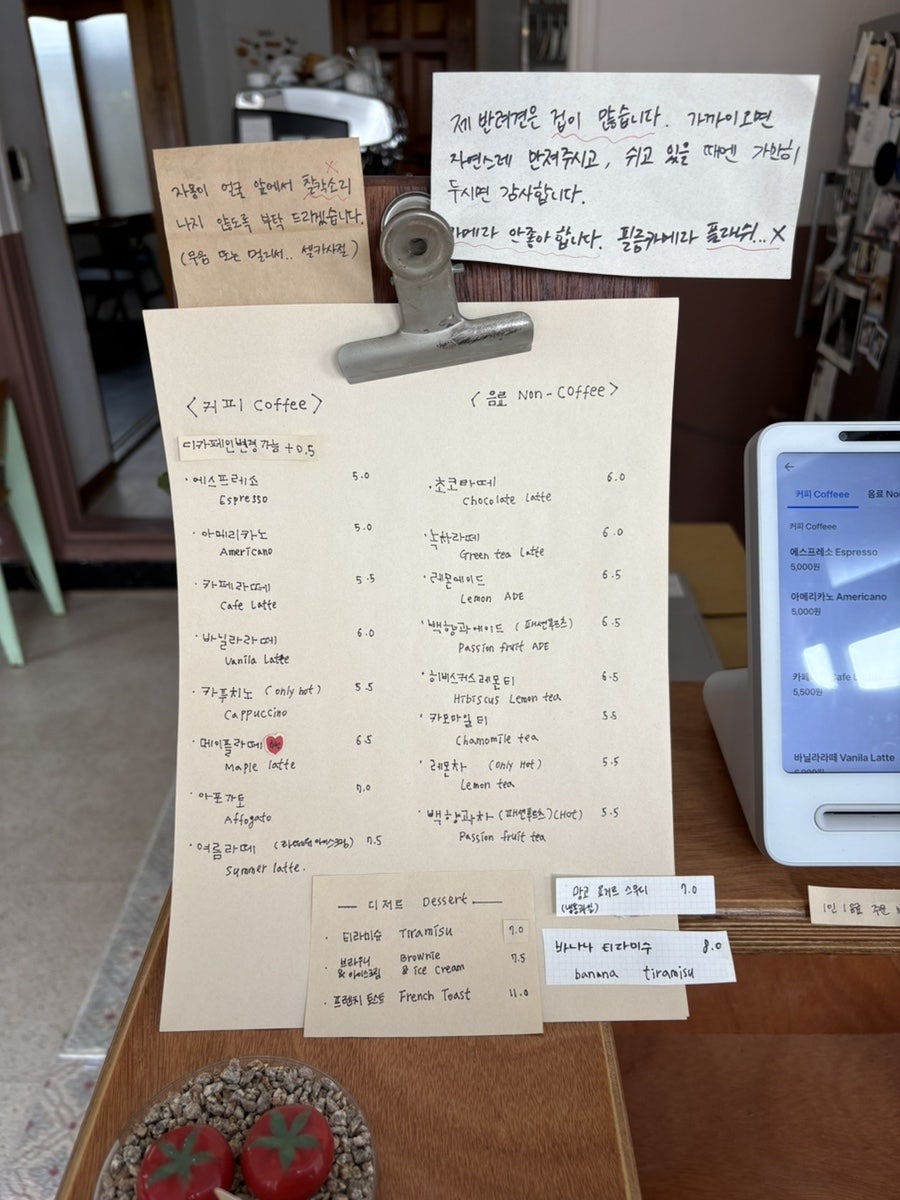 자몽이 얼굴 앞에서 찰칵소리
나지 않도록 부탁 드리겠습니다.
(무음 또는 멀리서.. 셀카사절)
제 반려견은 겁이 많습니다. 가까이오면
자연스레 만져주시고, 쉬고 있을 때엔 가만히
두시면 감사합니다.
카메라 안좋아합니다. 필름카메라 플래쉬...X
〈커피 Coffee〉
디카페인변경가능 +0.5
· 에스프레소 5.0
Espresso
· 아메리카노 5.0
Americano
· 카페라떼 5.5
Cafe Latte
· 바닐라라떼 6.0
Vanila Latte
· 카푸치노 (only hot) 5.5
Cappuccino
· 메이플라떼 6.5
Maple latte
· 아포가토 7.0
Affogato
· 여름라떼 7.5
Summer latte.
〈음료 Non-Coffee〉
· 초코라떼 6.0
Chocolate Latte
· 녹차라떼 6.0
Green tea Latte
· 레몬에이드 6.5
Lemon ADE
· 백향과에이드 (패션후르츠) 6.5
Passion fruit ADE
· 히비스커스레몬티 6.5
Hibiscus Lemon tea
카모마일 티 5.5
Chamomile tea
· 레몬차 (only Hot) 5.5
Lemon tea
· 백향과차 (패션후르츠)(Hot) 5.5
Passion fruit tea
— 디저트 Dessert —
· 티라미슈 Tiramisu 7.0
· 브라우니 Brownie 7.5
& 아이스크림 & Ice Cream
· 프렌치 토스트 French Toast 11.0
망고 요거트 스무디 7.0
(냉동과일)
바나나 티라미수 8.0
banana tiramisu
←
커피 Coffeee 음료 No
커피 Coffeee
에스프레소 Espresso
5,000원
아메리카노 Americano
5,000원
5,500원
바닐라라떼 Vanila Latte
6,000원
1인 1음료 주문